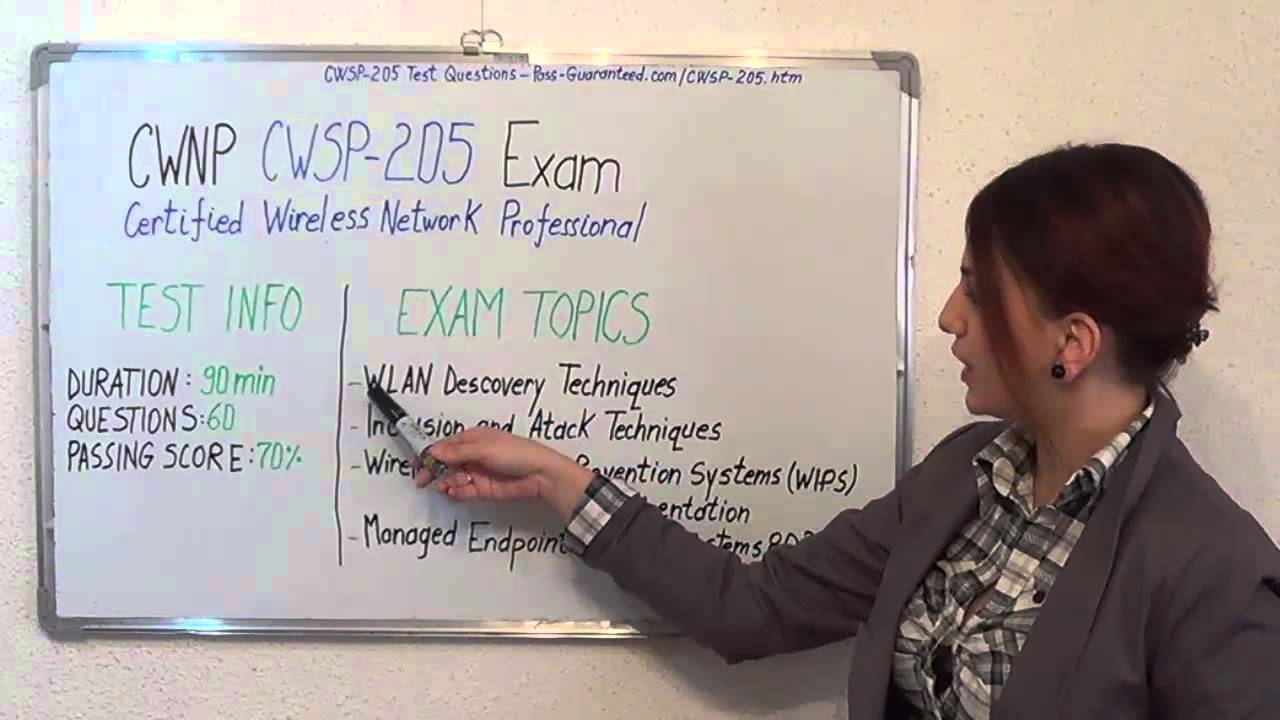 CWSP-205 Test Questions - Pass-Guaranteed.com/CWSP-205.htm
CWNP CWSP-205 Exam
Certified Wireless Network Professional
TEST INFO
DURATION: 90 min
QUESTIONS: 60
PASSING SCORE: 70%
EXAM TOPICS
- WLAN Descovery Techniques
- and Atack Techniques
- Systems (WIPS)
- Managed Endpoint